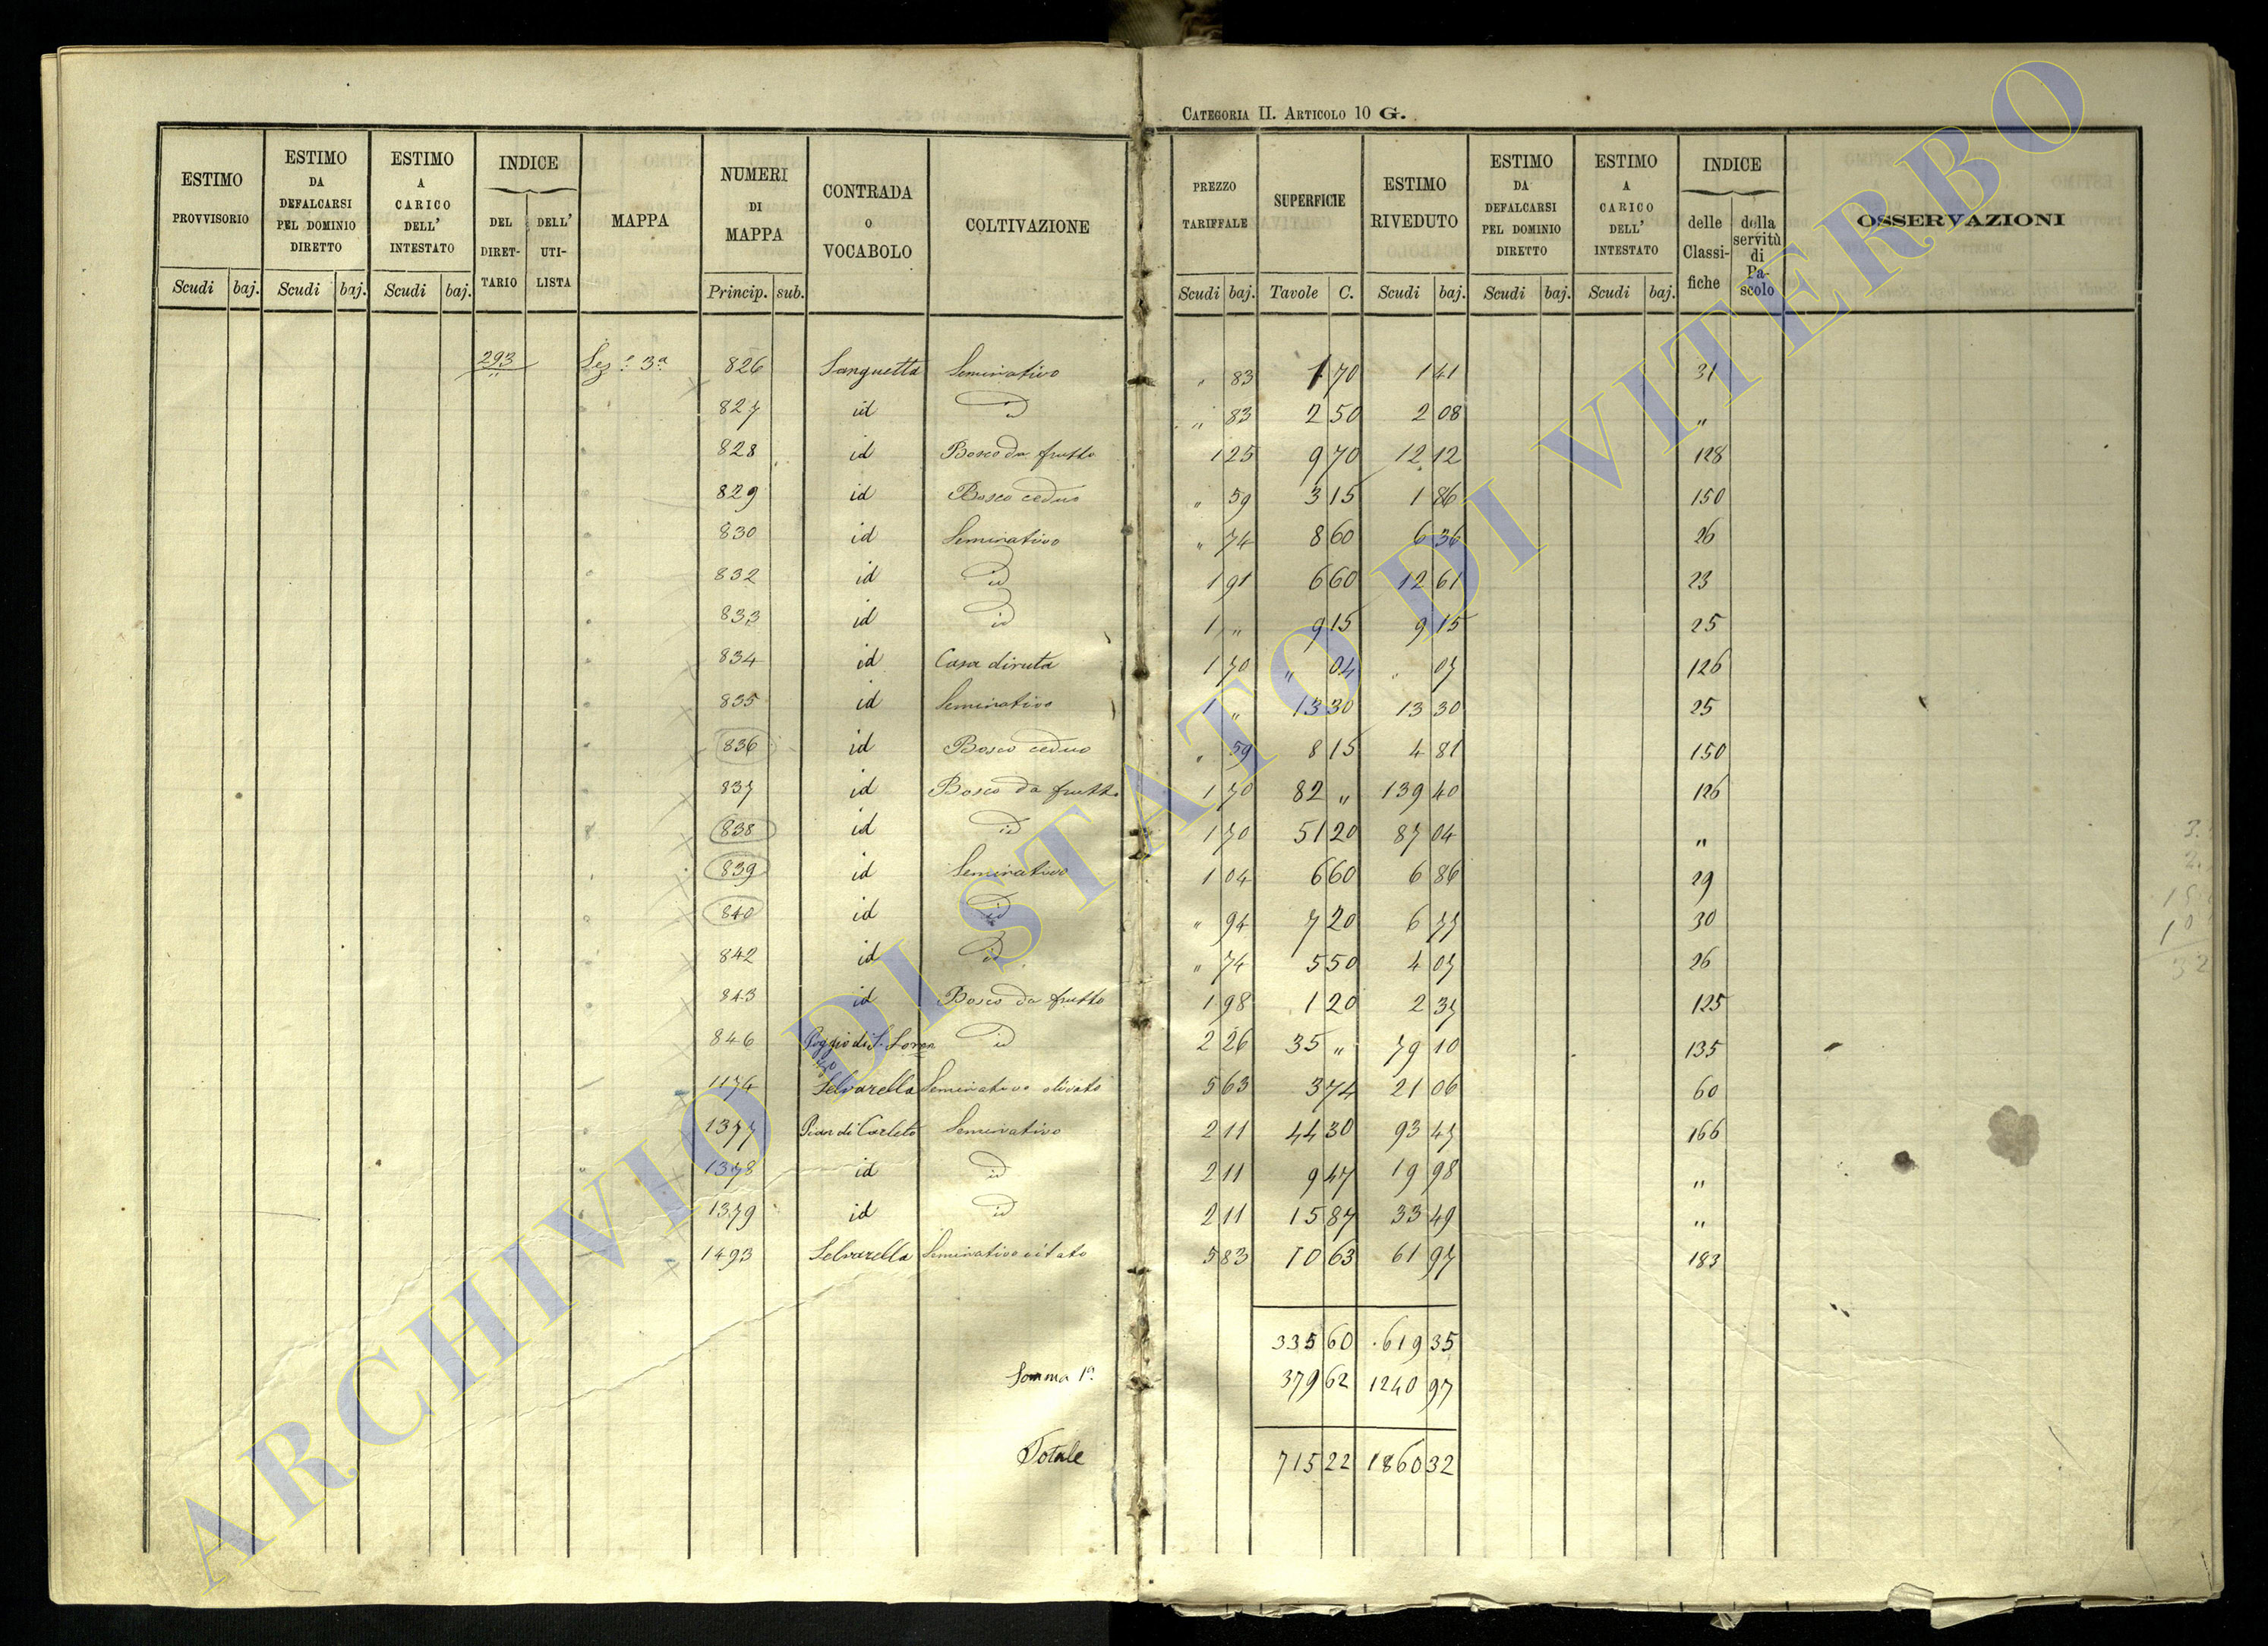 CATEGORIA II. ARTICOLO 10 G.
ESTIMO PROVVISORIO Scudi baj.
ESTIMO DA DEFALCARSI PEL DOMINIO DIRETTO Scudi baj.
ESTIMO A CARICO DELL' INTESTATO Scudi baj.
INDICE DEL DIRET-TARIO DELL' UTI-LISTA
MAPPA
NUMERI DI MAPPA Princip. sub.
CONTRADA O VOCABOLO
COLTIVAZIONE
PREZZO TARIFFALE Scudi baj.
SUPERFICIE Tavole C.
ESTIMO RIVEDUTO Scudi baj.
ESTIMO DA DEFALCARSI PEL DOMINIO DIRETTO Scudi baj.
ESTIMO A CARICO DELL' INTESTATO Scudi baj.
INDICE delle Classi-fiche della servitù di Pa-scolo
OSSERVAZIONI
293 Sez.e 3a 826 Sanguetta Seminativo " 83 1 70 1 41 31
827 id id " 83 2 50 2 08 "
828 id Bosco da frutto 1 25 9 70 12 12 128
829 id Bosco ceduo " 59 3 15 1 86 150
830 id Seminativo " 74 8 60 6 36 26
832 id id 1 91 6 60 12 61 23
833 id id 1 " 9 15 9 15 25
834 id Casa diruta 1 70 " 04 " 07 126
835 id Seminativo 1 " 13 30 13 30 25
836 id Bosco ceduo " 59 8 15 4 81 150
837 id Bosco da frutto 1 70 82 " 139 40 126
838 id id 1 70 51 20 87 04 "
839 id Seminativo 1 04 6 60 6 86 29
840 id id " 94 7 20 6 77 30
842 id id " 74 5 50 4 07 26
843 id Bosco da frutto 1 98 1 20 2 37 125
846 Poggio di S. Lorenzo id 2 26 35 " 79 10 135
1174 Selvarella Seminativo olivato 5 63 3 74 21 06 60
1377 Pian di Carleto Seminativo 2 11 44 30 93 47 166
1378 id id 2 11 9 47 19 98 "
1379 id id 2 11 15 87 33 49 "
1493 Selvarella Seminativo vitato 5 83 10 63 61 97 183
335 60 619 35
Somma 1a 379 62 1240 97
Totale 715 22 1860 32
ARCHIVIO DI STATO DI VITERBO